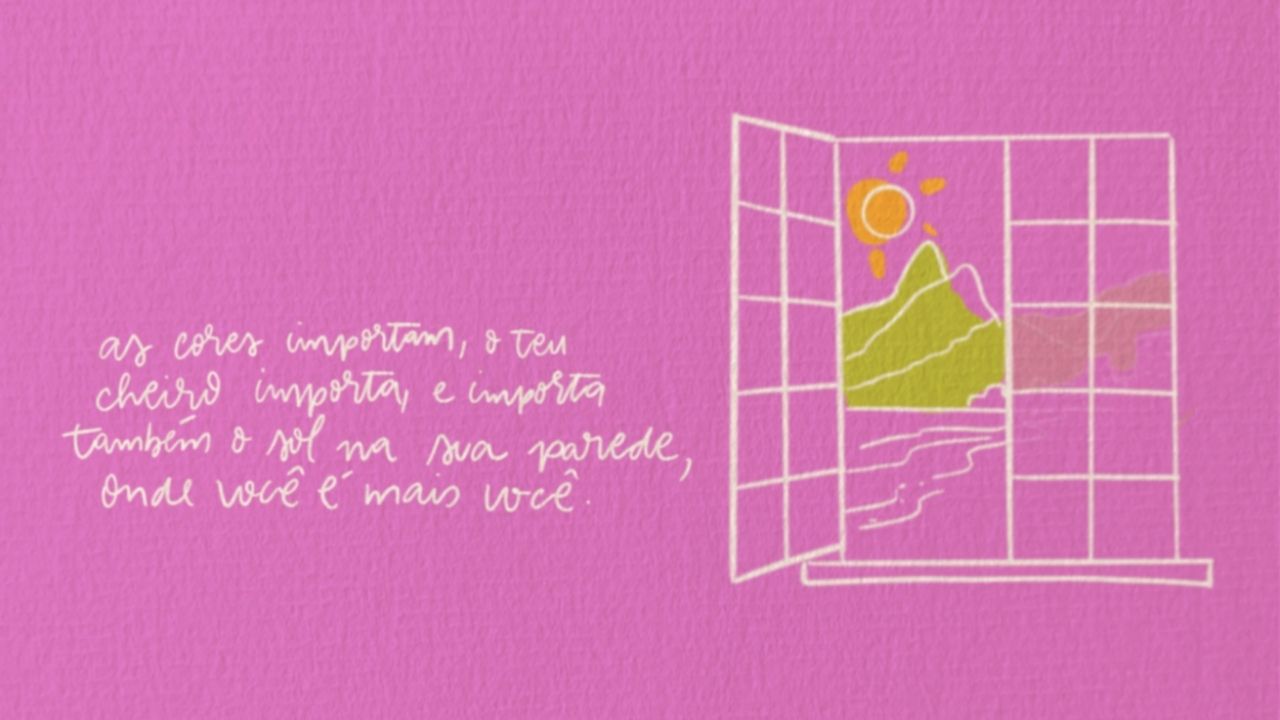 as cores importam, o teu
cheiro importa, e importa
também o sol na sua parede,
onde você é mais você.